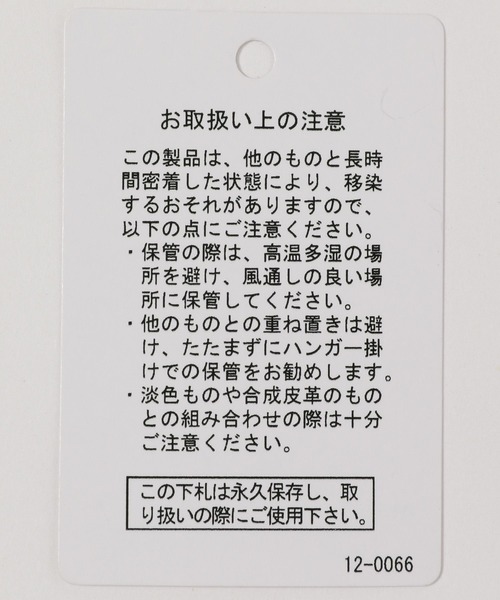 お取扱い上の注意
この製品は、他のものと長時
間密着した状態により、移染
するおそれがありますので、
以下の点にご注意ください。
・保管の際は、高温多湿の場
所を避け、風通しの良い場
所に保管してください。
・他のものとの重ね置きは避
け、たたまずにハンガー掛
けでの保管をお勧めします。
・淡色ものや合成皮革のもの
との組み合わせの際は十分
ご注意ください。
この下札は永久保存し、取
り扱いの際にご使用下さい。
12-0066